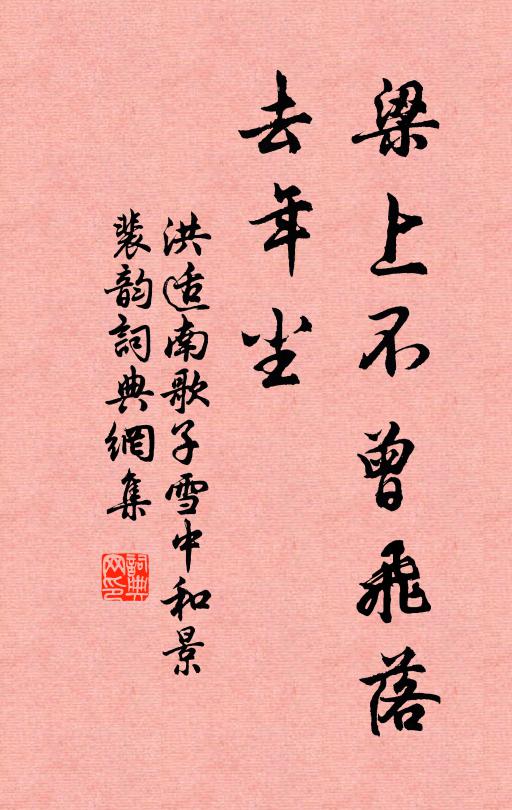 梁上不曾飛落
去年尘
洪适南歌子雪中和景
裴韵詞典網集
詞典
网印